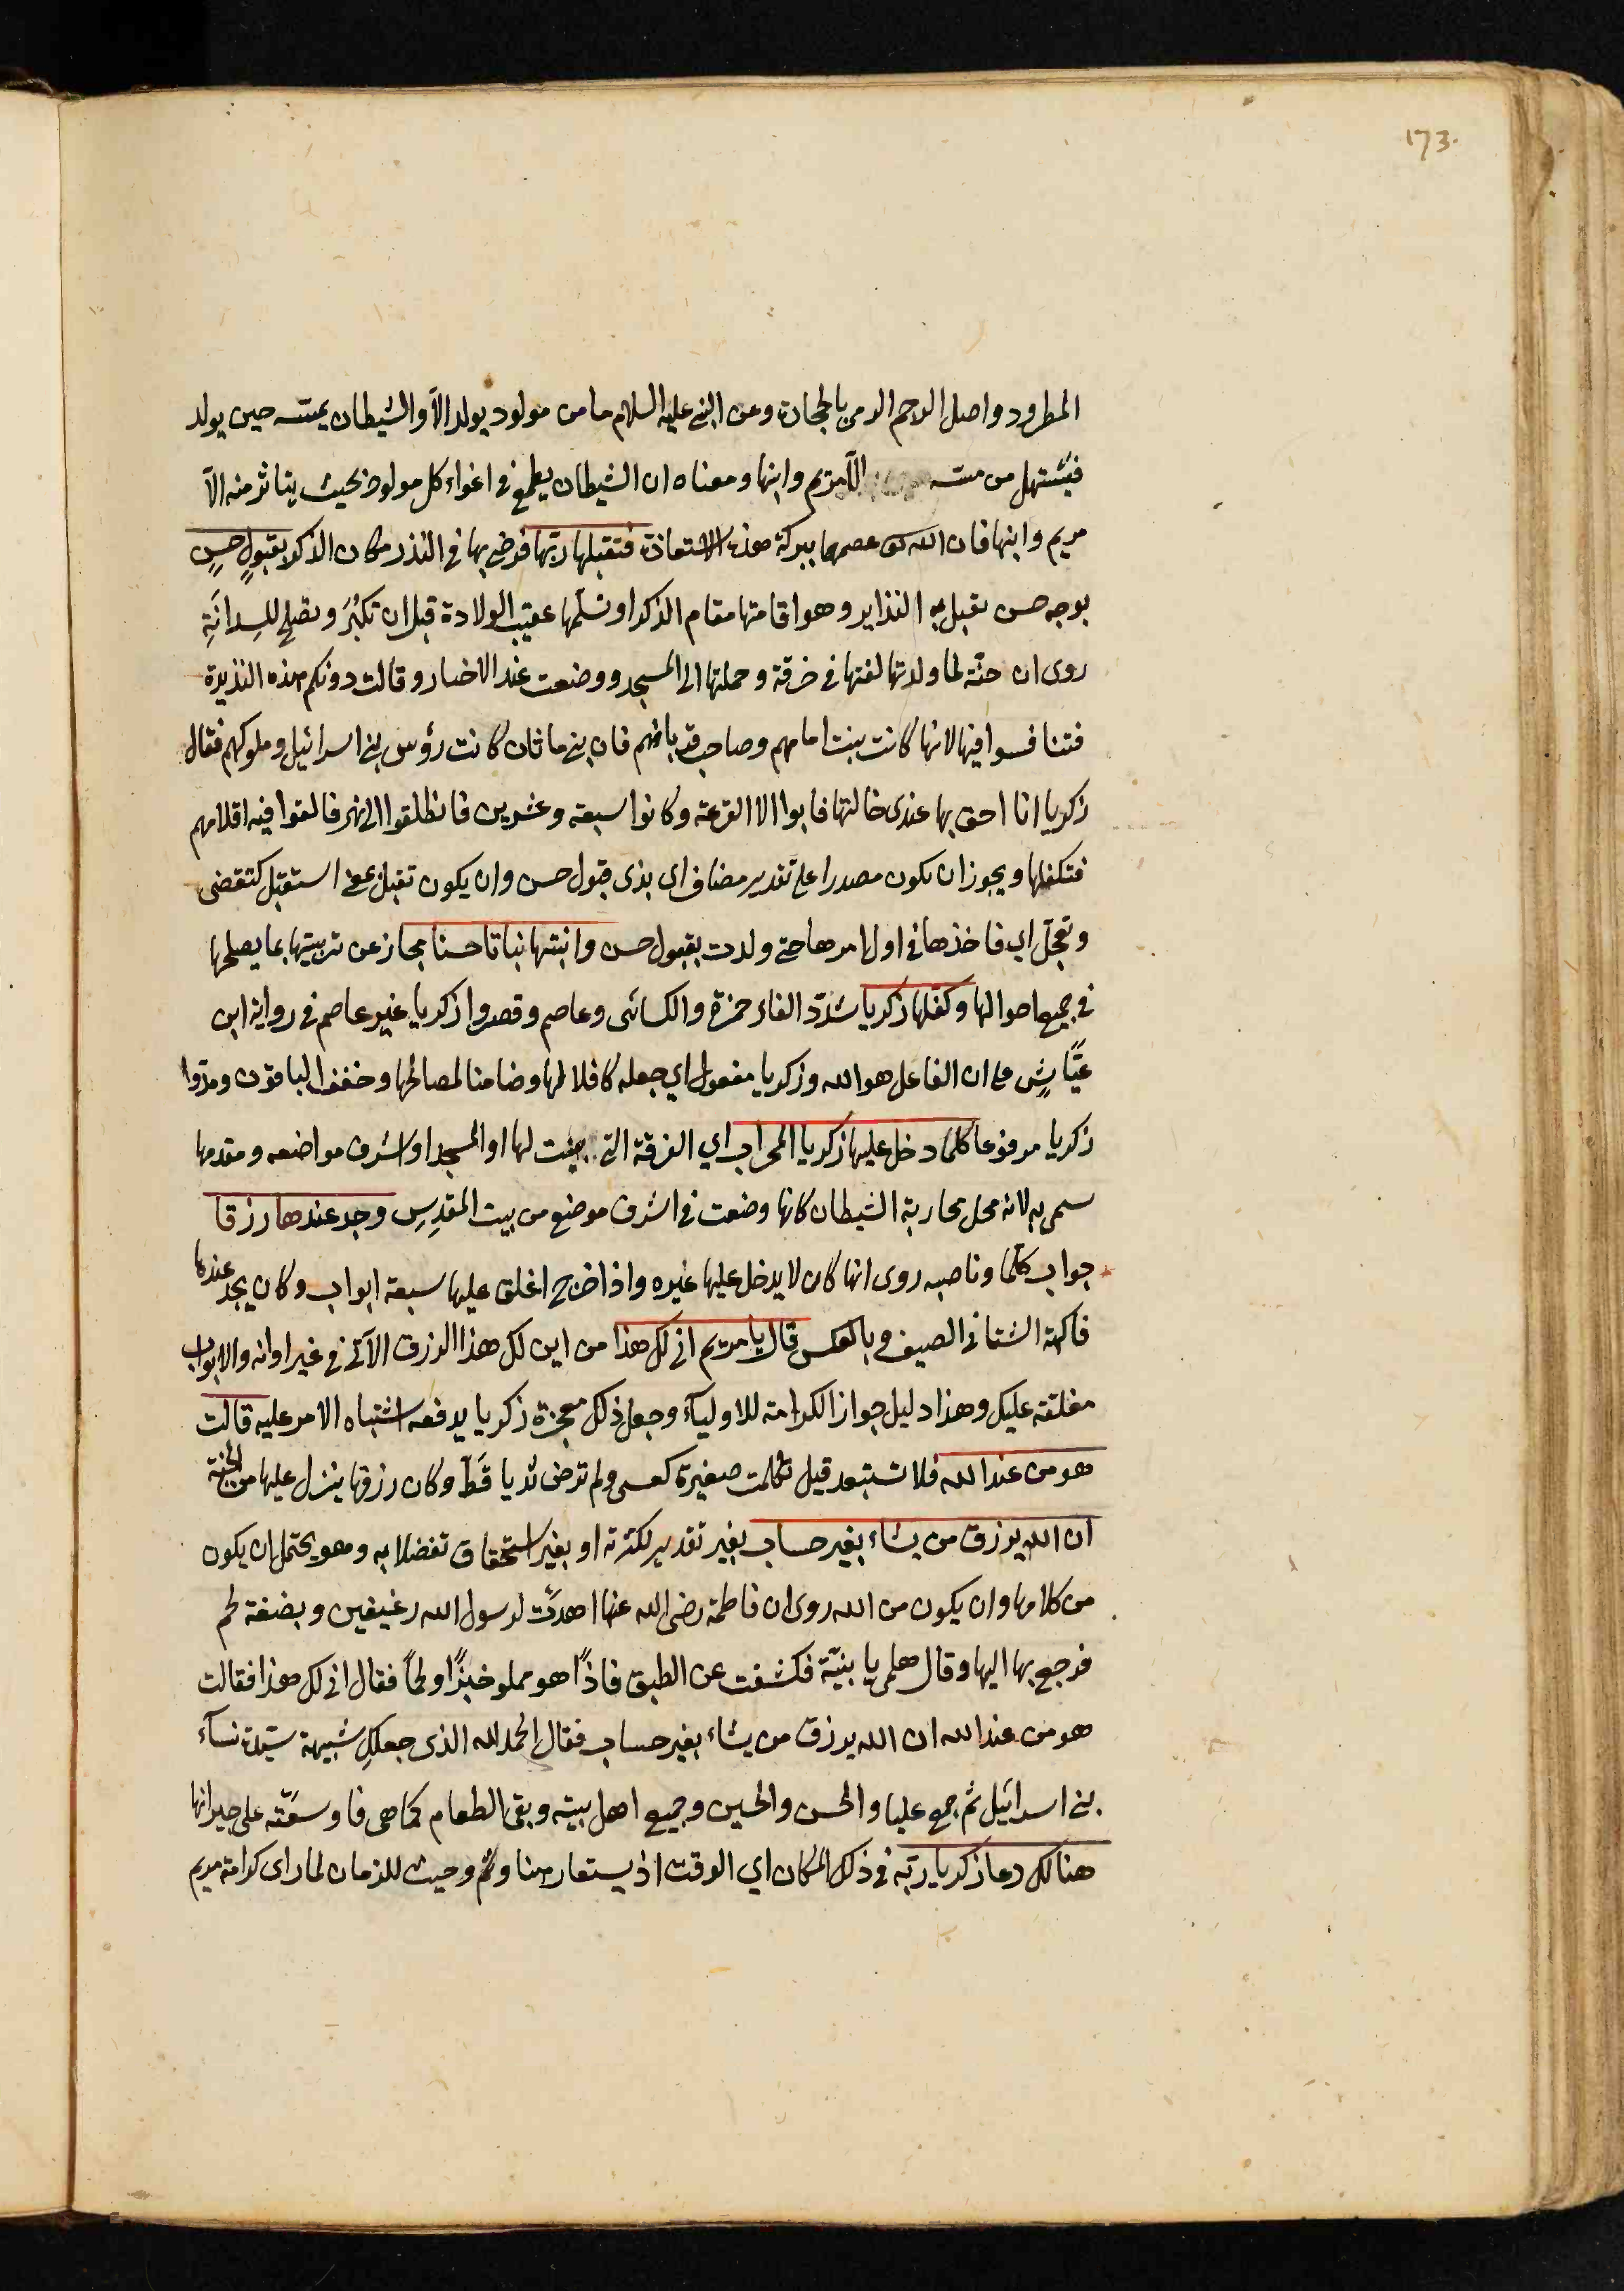 173.
المطرود واصل الرجم الرمى بالحجارة وعن النبي عليه السلام ما من مولود يولد الا والشيطان يمسه حين يولد
فيستهل من مسه الا مريم وابنها ومعناه ان الشيطان يطمع في اغواء كل مولود بحيث يتاثر منه الا
مريم وابنها فان الله تعالى عصمهما ببركة هذه الاستعاذة فتقبلها ربها فرضي بها في النذر مكان الذكر بقبولٍ حسنٍ
بوجه حسن يقبل به النذاير وهو اقامتها مقام الذكر او تسلمها عقيب الولادة قبل ان تكبُرَ وتصلح للسِدانَةِ
روى ان حنّة لما ولدتها لفتها في خرقة وحملتها الى المسجد ووضعت عند الاحبار وقالت دونكم هذه النذيرة
فتنافسوا فيها لانها كانت بنت امامهم وصاحب قربانهم فان بني ماثان كانت رؤس بني اسرائيل وملوكهم فقال
زكريا انا احق بها عندى خالتها فابوا الا القرعة وكانوا سبعة وعشرين فانطلقوا الى نهر فالقوا فيه اقلامهم
فتكفلها ويجوز ان يكون مصدرا على تقدير مضاف اى بذى قبول حسن وان يكون تقبل بمعنى استقبل كتقضى
وتعجّل اي فاخذها في اول امرها حتى ولدت بقبول حسن وانبتها نباتا حسنا مجاز عن تربيتها بما يصلحها
في جميع احوالها وكفلها زكريا شدّد الفاء حمزة والكسائى وعاصم وقصروا زكريا غير عاصم في رواية ابن
عيّاشٍ على ان الفاعل هو الله وزكريا مفعول اي جعله كافلا لها وضامنا لمصالحها وخفف الباقون ومدّوا
زكريا مرفوعا كلما دخل عليها زكريا المحراب اي الغرفة التي بنيت لها او المسجد او اشرف مواضعه ومقدمها
سمى به لانه محل محاربة الشيطان كانها وضعت في اشرف موضع من بيت المقدِسِ وجد عندها رزقا
جواب كلّما وناصبه روى انها كان لا يدخل عليها غيره واذا خرج اغلق عليها سبعة ابواب وكان يجد عندها
فاكهة الشتا في الصيف وبالعكس قال يا مريم انى لك هذا من اين لك هذا الرزق الآتي في غير اوانه والابواب
مغلقة عليك وهذا دليل جواز الكرامة للاوليآء وجعل ذلك معجزة زكريا يدفعه اشتباه الامر عليه قالت
هو من عند الله فلا تستبعد قيل تكلمت صغيرة كعيسى ولم ترضع ثديا قَطّ وكان رزقها ينزل عليها من الجنة
ان الله يرزق من يشاء بغير حساب بغير تقدير لكثرته او بغير استحقاق تفضلا به وهو يحتمل ان يكون
من كلامها وان يكون من الله روى ان فاطمة رضى الله عنها اهدت لرسول الله رغيفين وبضعة لحم
فرجع بها اليها وقال هلمى يا بنيّة فكشفت عن الطبق فاذًا هو مملو خبزًا ولحمًا فقال انى لك هذا فقالت
هو من عند الله ان الله يرزق من يشاء بغير حساب فقال الحمد لله الذى جعلكِ شبيهة سيّدة نسآء
بني اسرائيل ثم جمع عليا والحسن والحسين وجميع اهل بيته وبقى الطعام كما هى فاوسعته على جيرانها
هنالك دعا زكريا ربّه في ذلك المكان اي الوقت اذ يستعار هنا وثم وحيث للزمان لما راى كرامة مريم